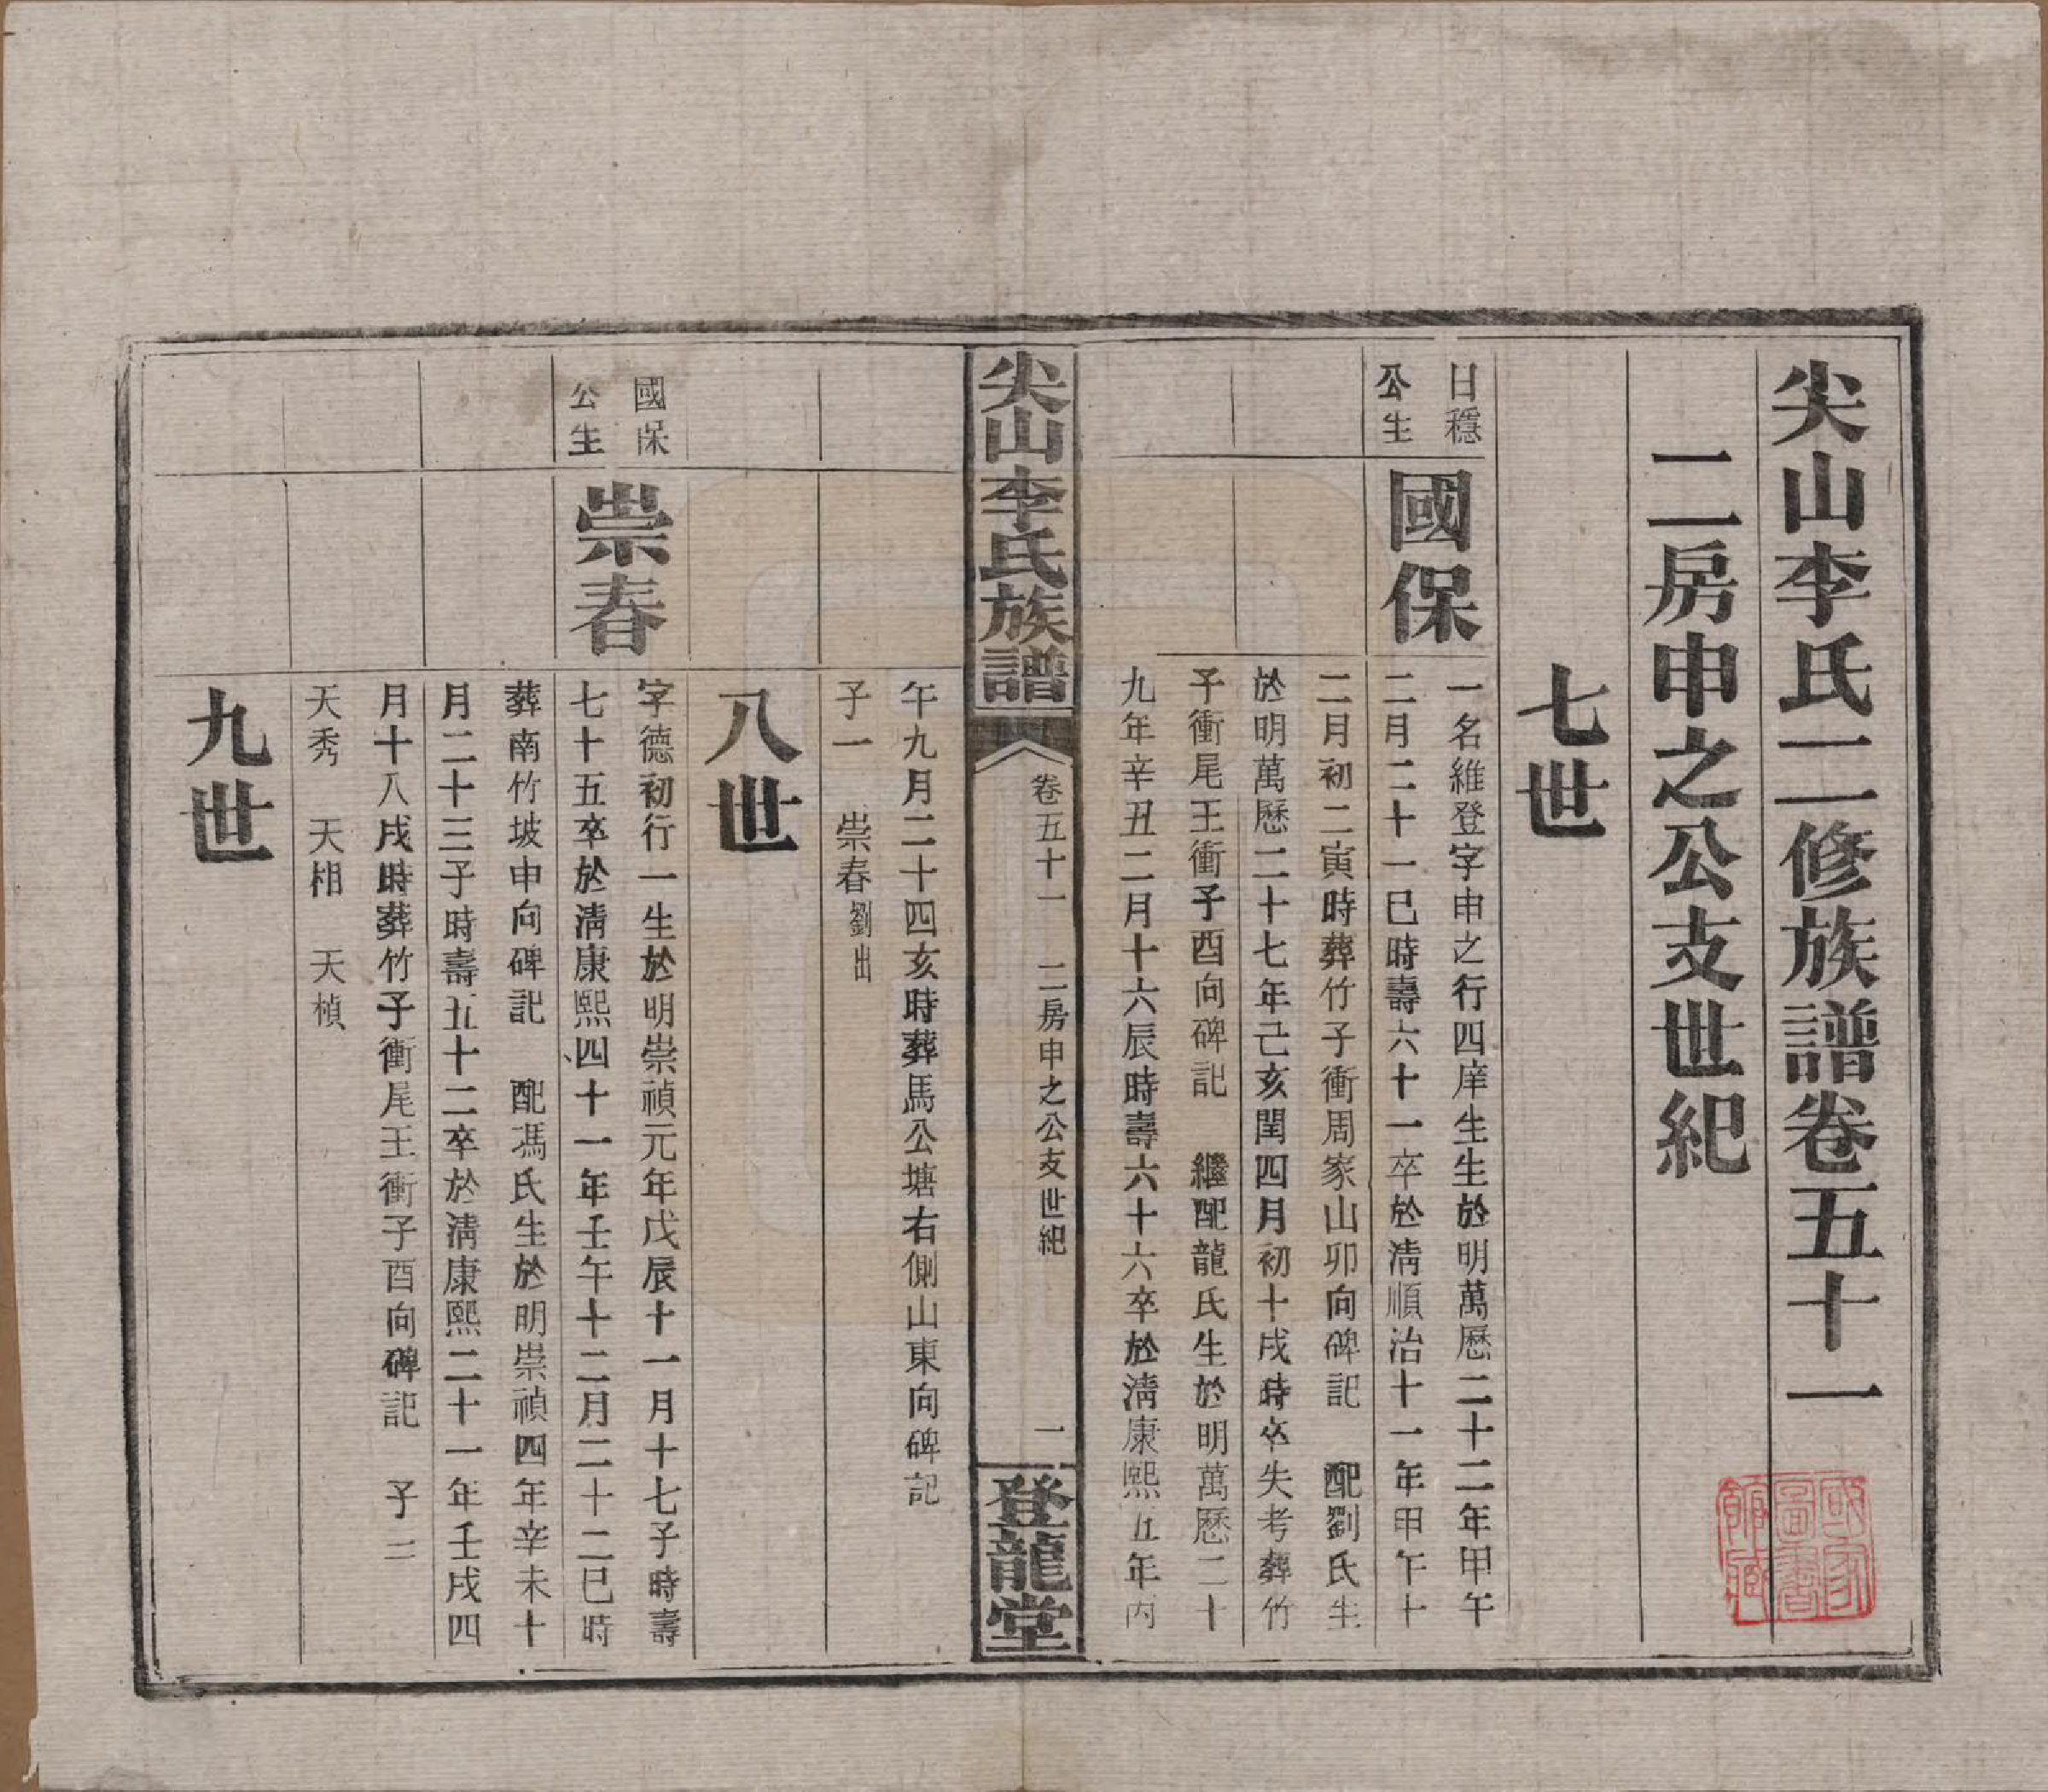 尖山李氏二修族譜卷五十一
二房申之公支世紀
七世
日穩
公生
國保
一名維登字申之行四庠生生於明萬曆二十二年甲午
二月二十一巳時壽六十一卒於清順治十一年甲午十
二月初二寅時葬竹子衝周家山卯向碑記　配劉氏生
於明萬曆二十七年己亥閏四月初十戌時卒失考葬竹
子衝尾王衝子酉向碑記　繼配龍氏生於明萬曆二十
九年辛丑二月十六辰時壽六十六卒於清康熙五年丙
尖山李氏族譜
卷五十一　二房申之公支世紀
一
登龍堂
午九月二十四亥時葬馬公塘右側山東向碑記
子一　崇春劉出
八世
國保
公生
崇春
字德初行一生於明崇禎元年戊辰十一月十七子時壽
七十五卒於清康熙四十一年壬午十二月二十二巳時
葬南竹坡申向碑記　配馮氏生於明崇禎四年辛未十
月二十三子時壽五十二卒於清康熙二十一年壬戌四
月十八戌時葬竹子衝尾王衝子酉向碑記　子三
天秀　天相　天楨
九世
國家圖書館藏